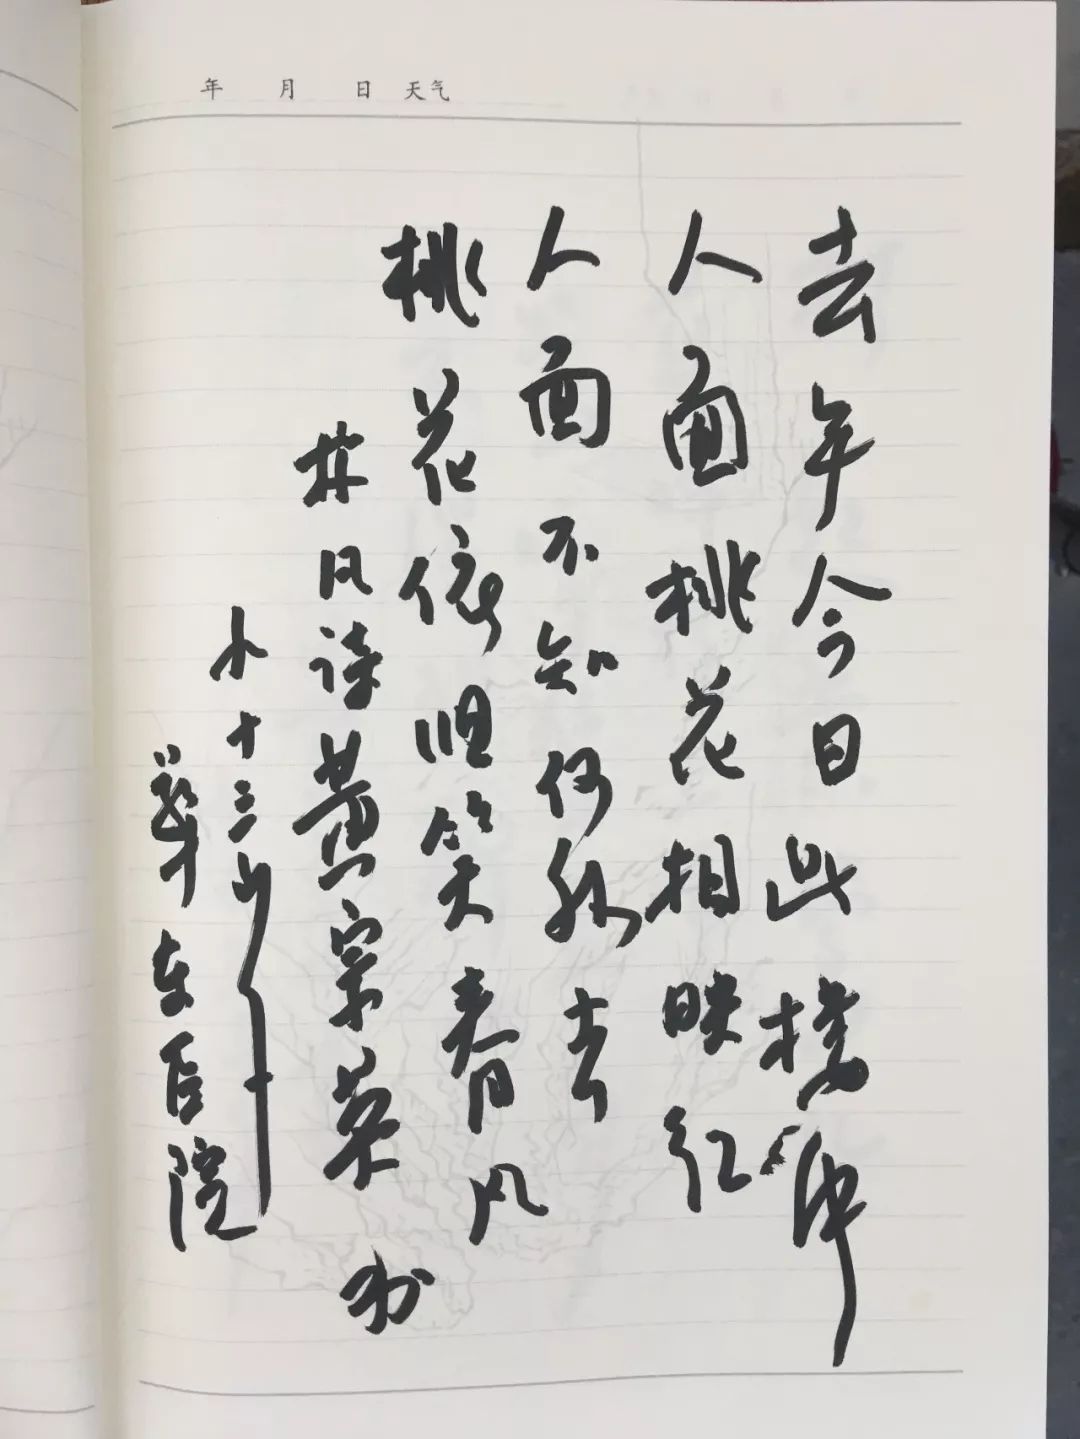 年 月 日 天气
去年今日此中
人面桃花相映红
人面不知何处去
桃花依旧笑春风
诗黄宗英书
十三
华东医院